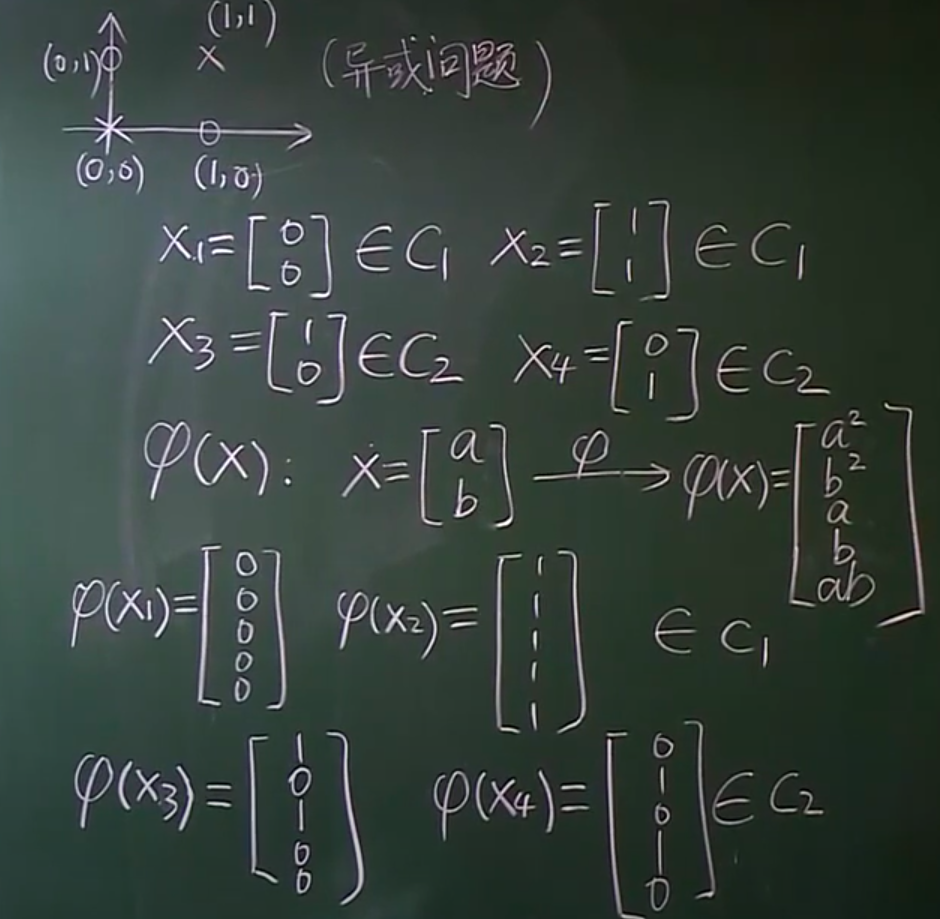 (1,1)
(0,1) × (异或问题)
(0,0) (1,0)
X₁=[0 0] ∈ C₁ X₂=[1 1] ∈ C₁
X₃=[1 0] ∈ C₂ X₄=[0 1] ∈ C₂
φ(X): X=[a b] —φ→ φ(X)=[a² b² a b ab]
φ(X₁)=[0 0 0 0 0] φ(X₂)=[1 1 1 1 1] ∈ C₁
φ(X₃)=[1 0 1 0 0] φ(X₄)=[0 1 0 1 0] ∈ C₂